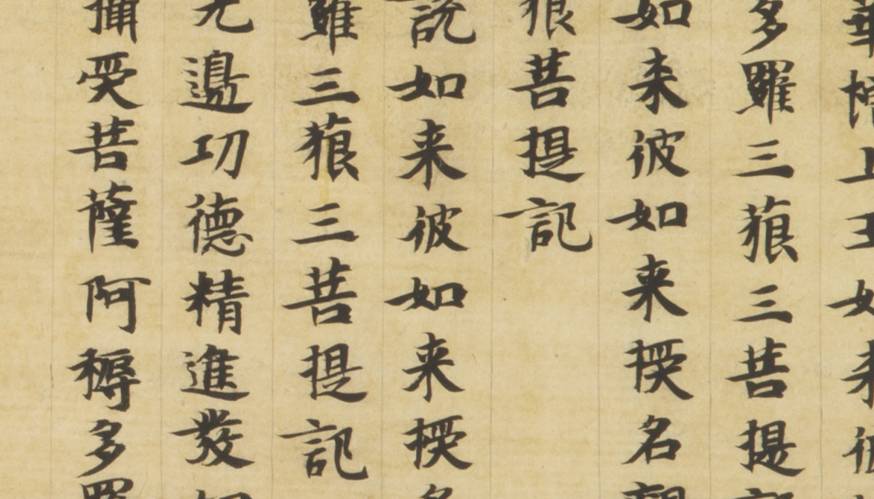 上王如来彼
多羅三藐三菩提
如来彼如来授名
藐菩提記
說如来彼如来授
羅三藐三菩提記
无邊功德精進發
攝受菩薩阿耨多羅